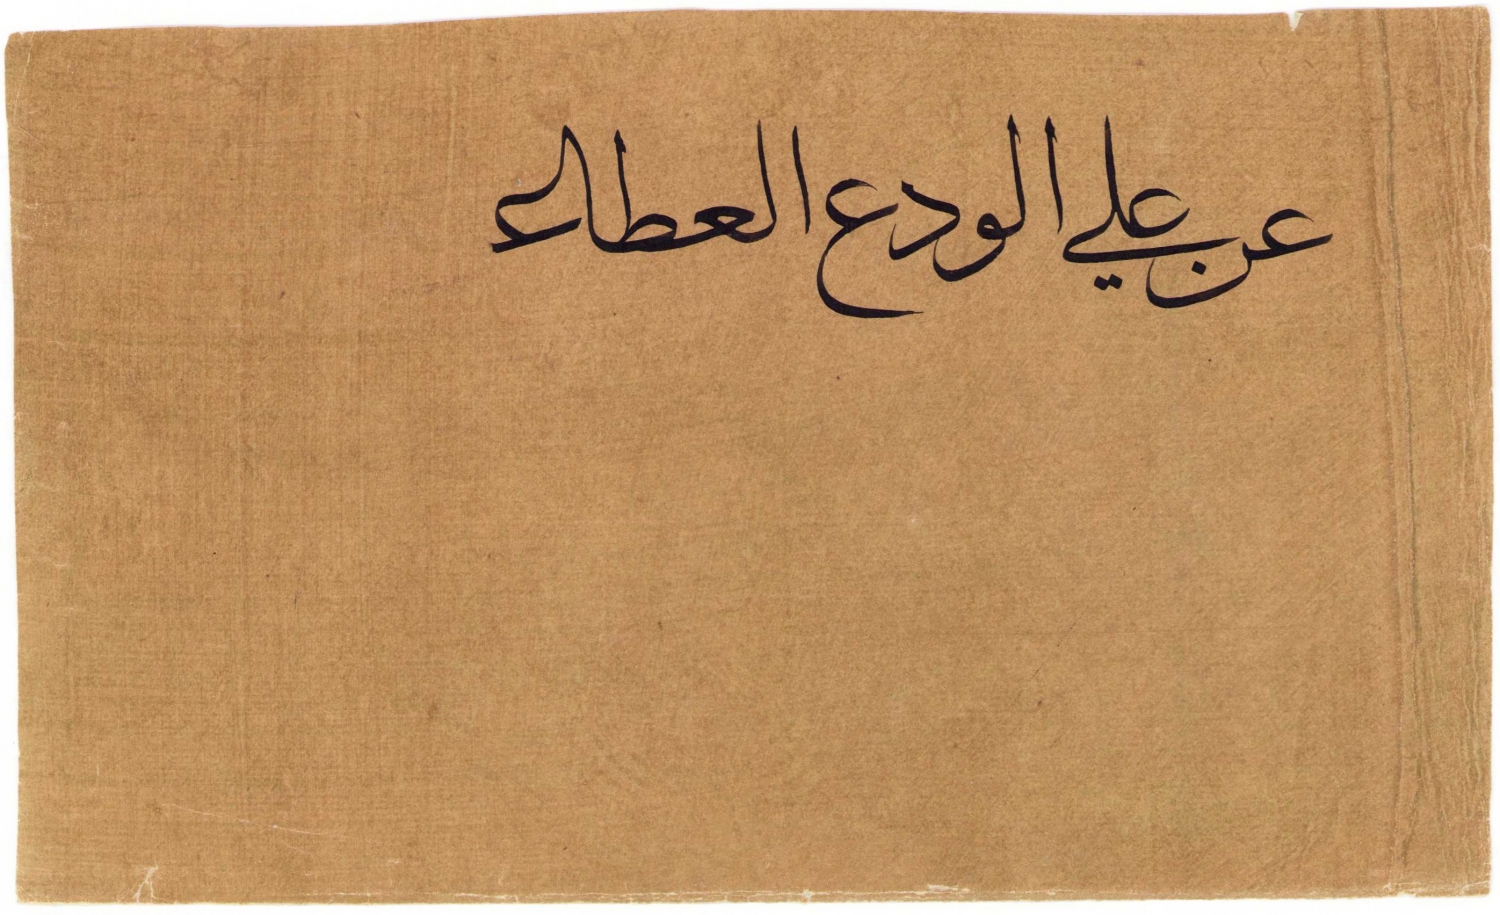 عن علي الودع العطاء